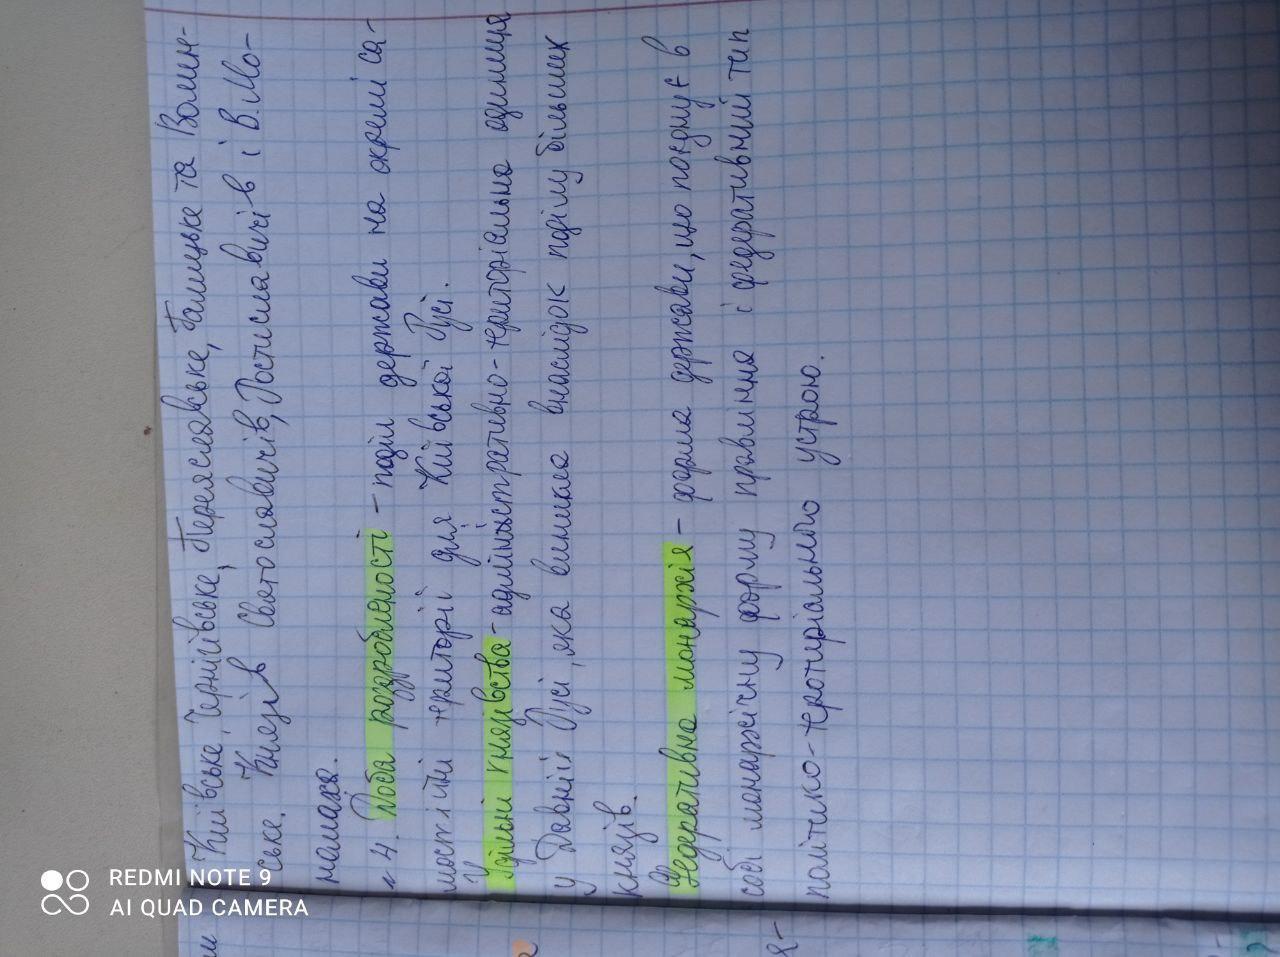 Київське, Чернігівське, Переяславське, Галицьке та Волин-
ське. Князів Святославичів, Ростиславичів і В.Мо-
номаха.
№4. Доба роздробленості - поділ держави на окремі са-
мостійні території для Київської Русі.
Удільні князівства - адміністративно-територіальна одиниця
у Давній Русі, яка виникла внаслідок поділу більших
князів.
Федеративна монархія - форма держави, що поєднує в
собі монархічну форму правління і федеративний тип
політико-територіального устрою.
REDMI NOTE 9
AI QUAD CAMERA